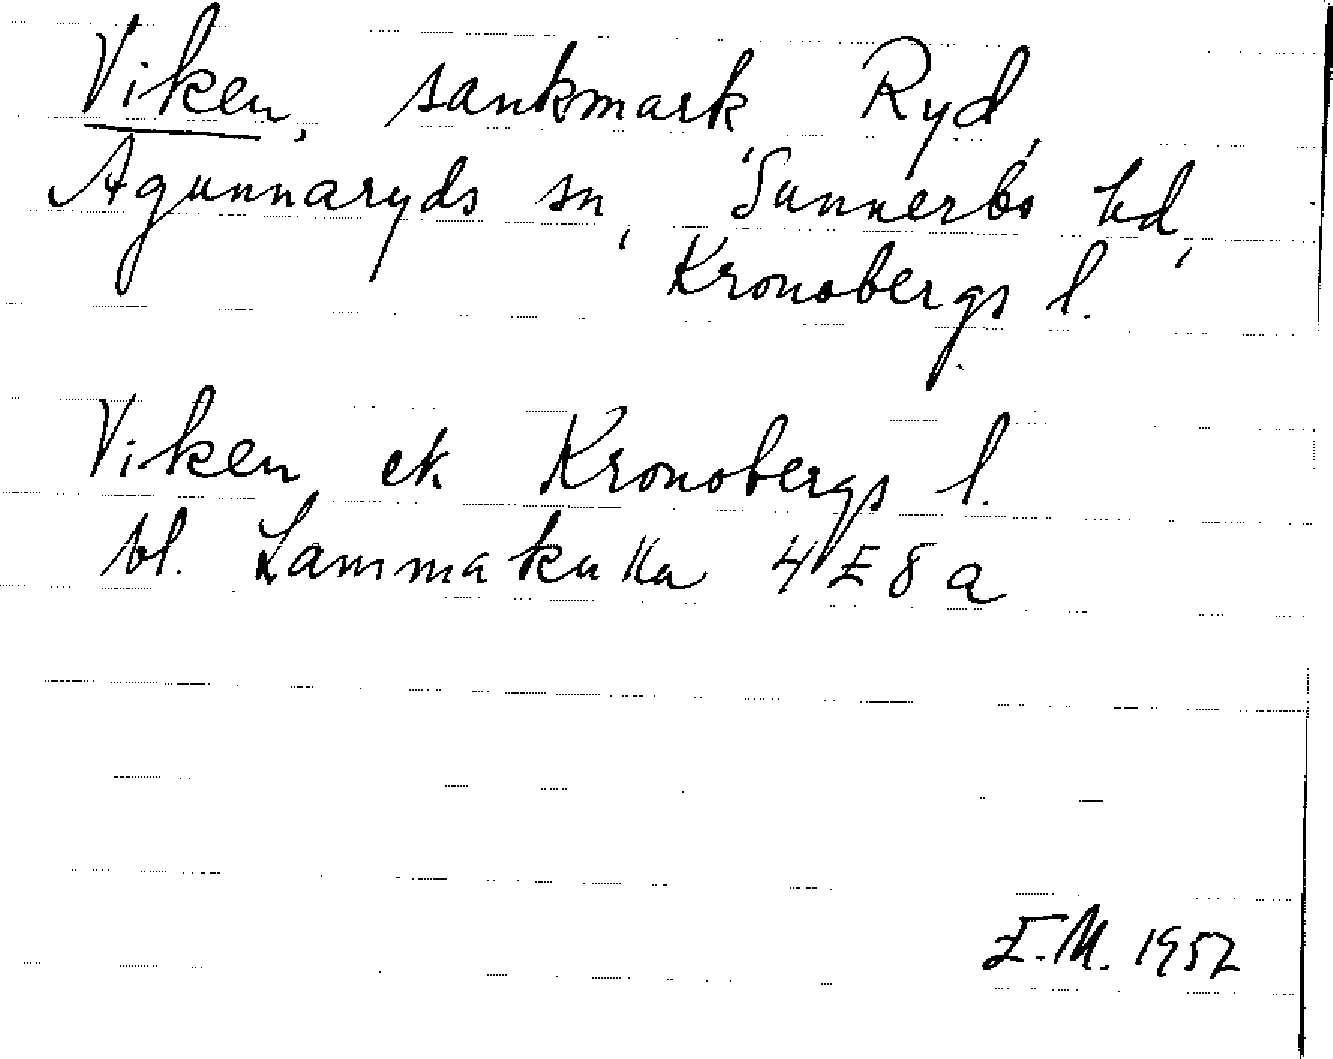 Viken, sankmark, Ryd,
Agunnaryds sn, Sunnerbo hd,
Kronobergs l.
Viken ek Kronobergs l.
bl. Lammakulla 4E8a
E.M. 1952